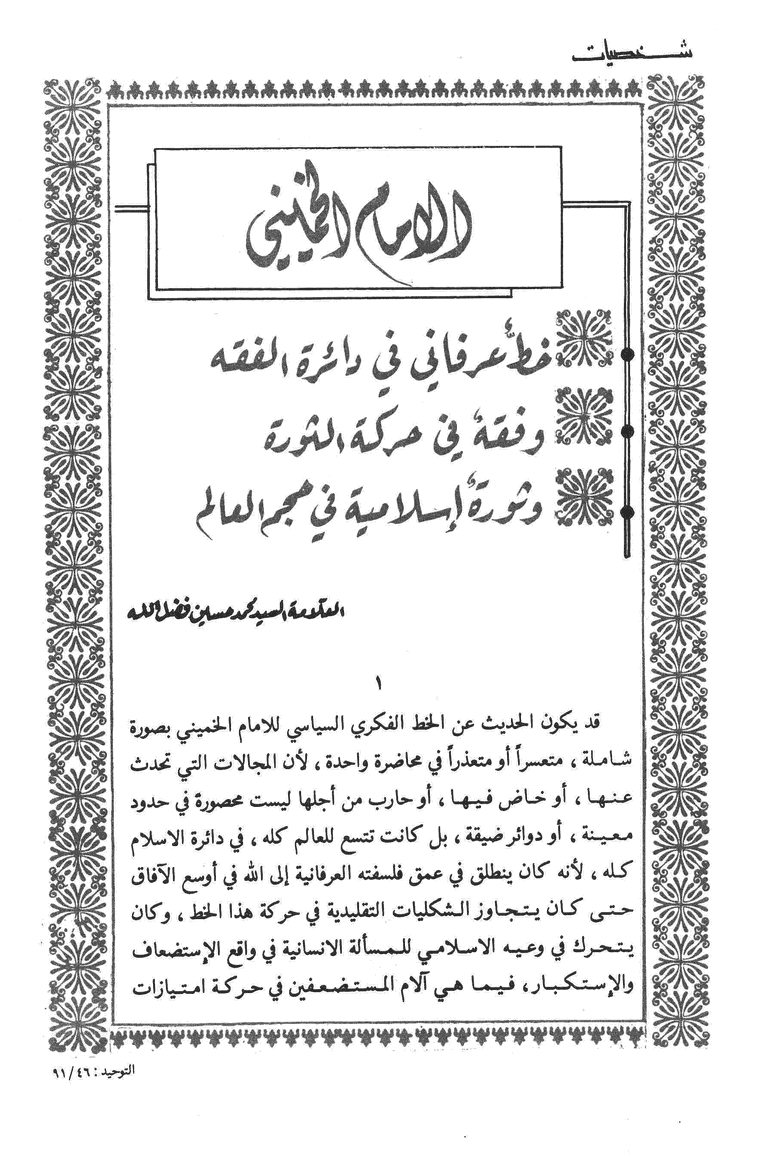 شخصيات
الامام الخميني
خطٌّ عرفاني في دائرة الفقه
وفقهٌ في حركة الثورة
وثورةٌ إسلامية في حجم العالم
العلّامة السيد محمد حسين فضل الله
١
قد يكون الحديث عن الخط الفكري السياسي للامام الخميني بصورة
شاملة ، متعسراً أو متعذراً في محاضرة واحدة ، لأن المجالات التي تحدث
عنها ، أو خاض فيها ، أو حارب من أجلها ليست محصورة في حدود
معينة ، أو دوائر ضيقة ، بل كانت تتسع للعالم كله ، في دائرة الاسلام
كله ، لأنه كان ينطلق في عمق فلسفته العرفانية إلى الله في أوسع الآفاق
حتى كان يتجاوز الشكليات التقليدية في حركة هذا الخط ، وكان
يتحرك في وعيه الاسلامي للمسألة الانسانية في واقع الإستضعاف
والإستكبار ، فيما هي آلام المستضعفين في حركة امتيازات
التوحيد : ٤٦ / ٩١